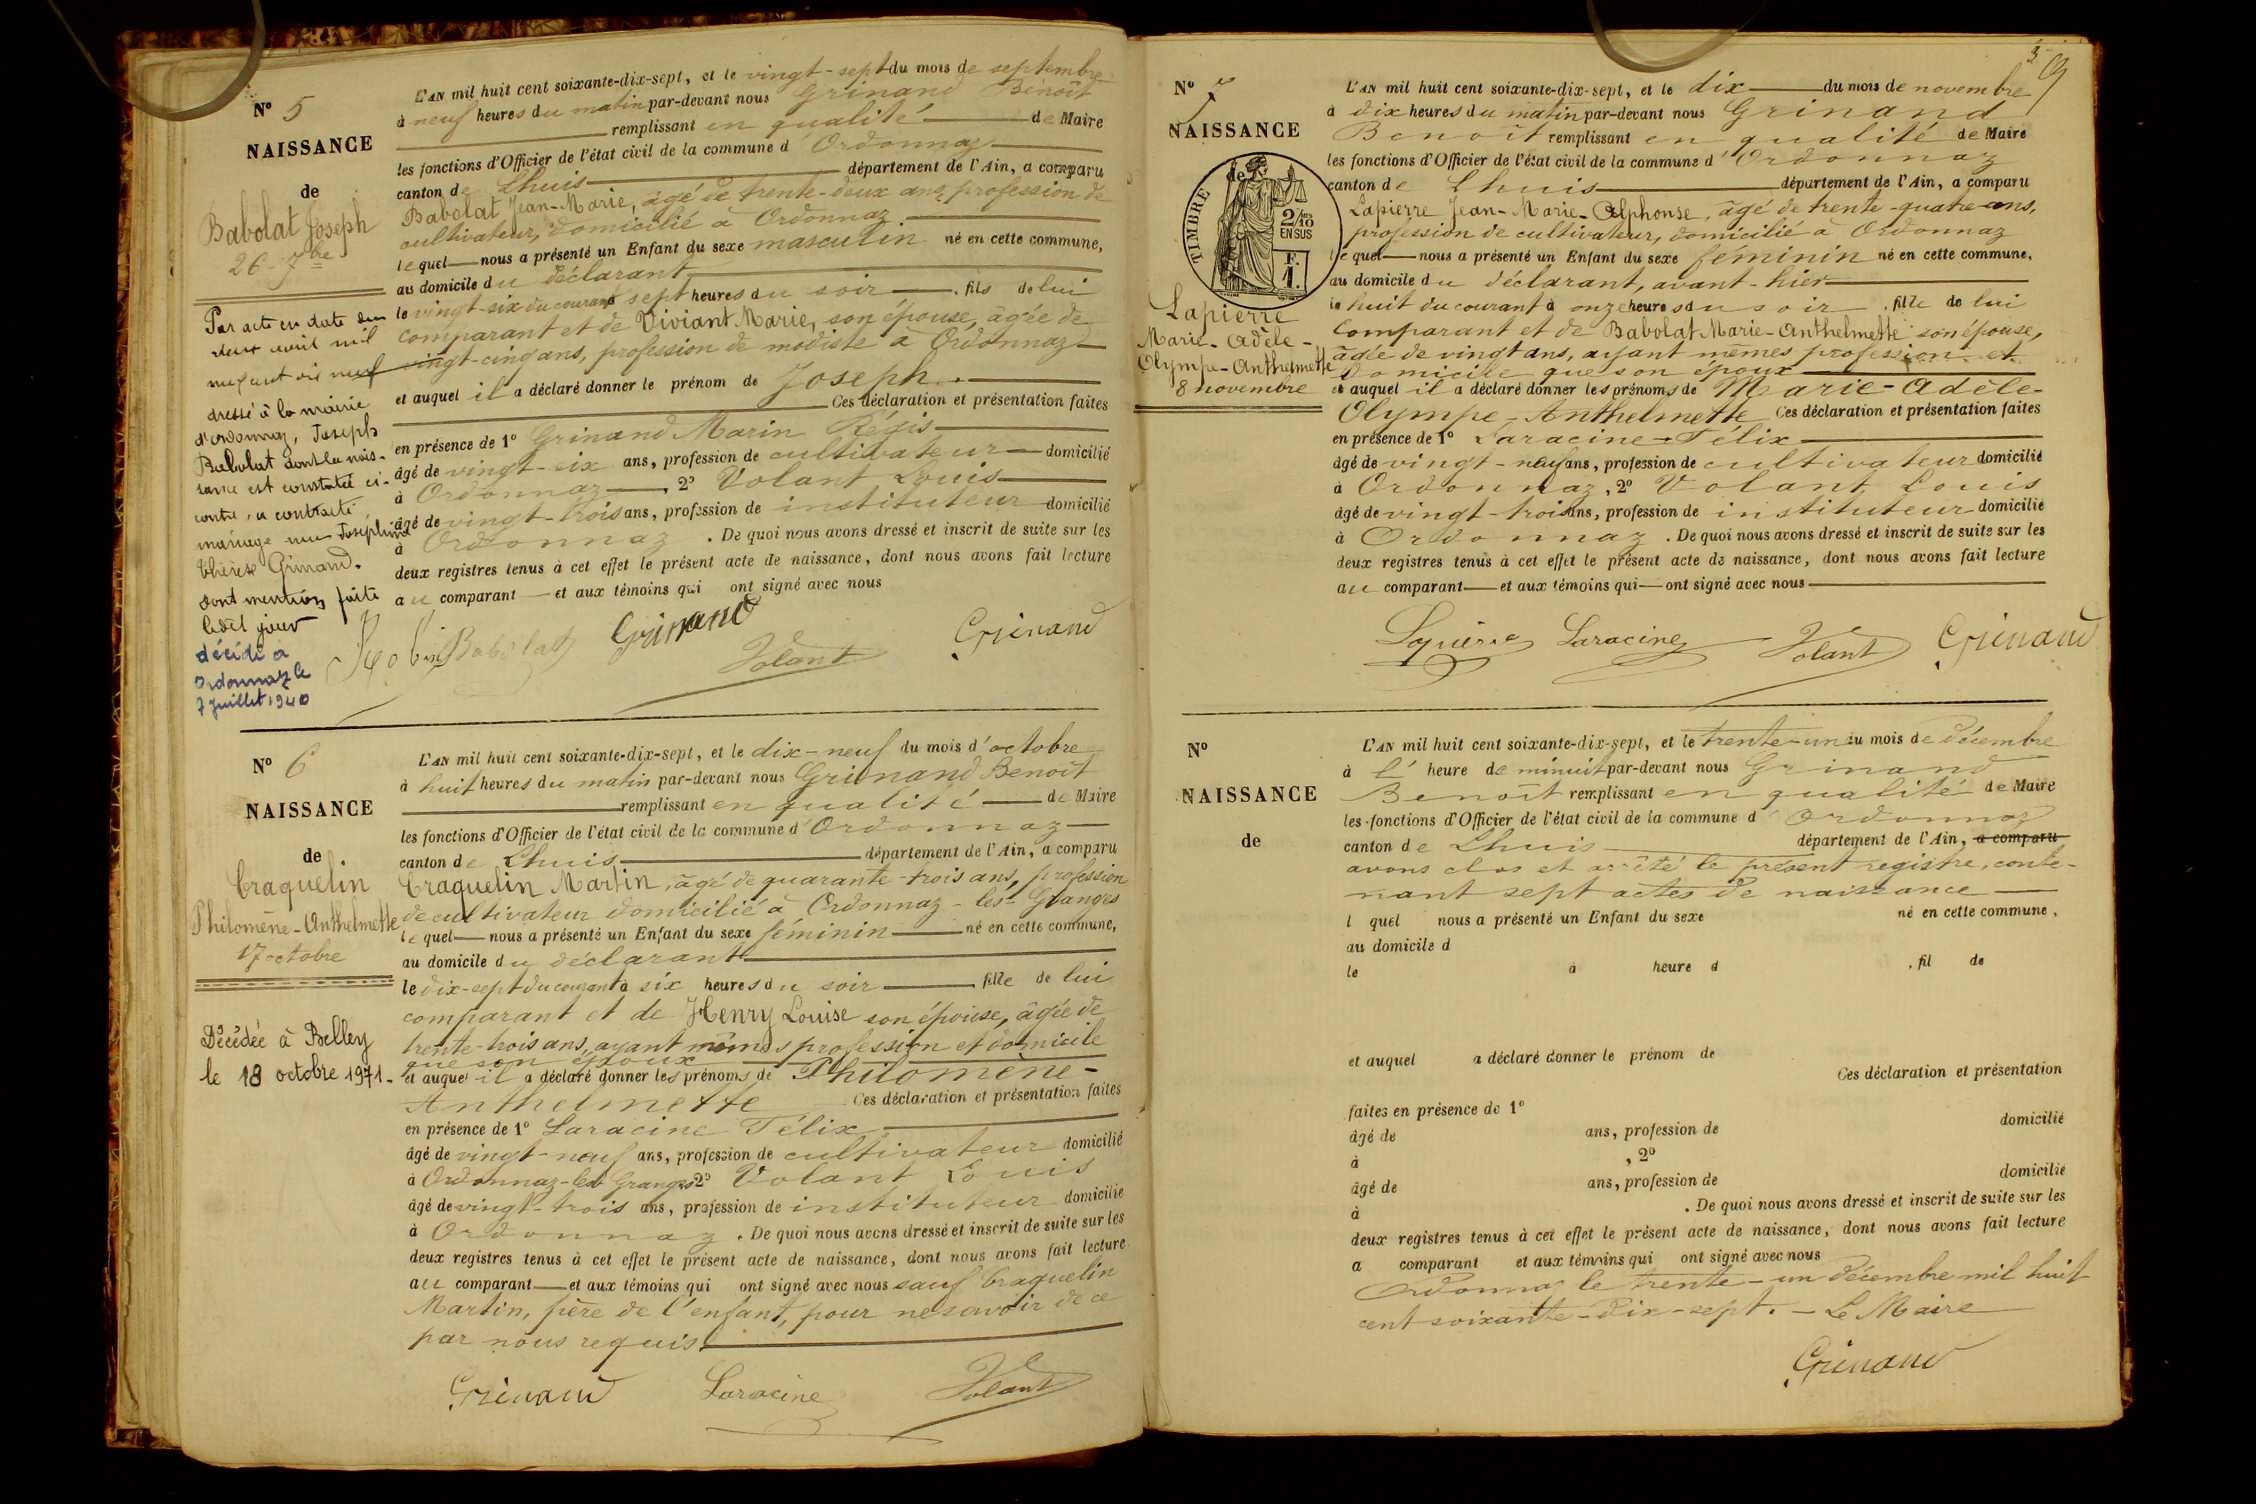 N° 5
NAISSANCE
de
Babolat Joseph
26 7bre
Par acte en date du
deux avril mil
neuf cent six neuf
dressé à la mairie
d'Ordonnaz, Joseph
Babolat dont la nais-
sance est constatée ci-
contre, a contracté
mariage avec Joséphine
Thérèse Grinand.
Dont mention faite
ledit jour
décédé à
Ordonnaz le
7 juillet 1940
L'AN mil huit cent soixante-dix-sept, et le vingt-sept du mois de septembre
à neuf heures du matin par-devant nous Grinand Benoît
remplissant en qualité de Maire
les fonctions d'Officier de l'état civil de la commune d'Ordonnaz
canton de Lhuis département de l'Ain, a comparu
Babolat Jean-Marie, âgé de trente-deux ans, profession de
cultivateur, domicilié à Ordonnaz.
lequel nous a présenté un Enfant du sexe masculin né en cette commune,
au domicile du déclarant
le vingt-six du courant à sept heures du soir, fils de lui
comparant et de Viviant Marie, son épouse, âgée de
vingt-cinq ans, profession de modiste à Ordonnaz
et auquel il a déclaré donner le prénom de Joseph.
Ces déclaration et présentation faites
en présence de 1° Grinand Marin Régis
âgé de vingt-six ans, profession de cultivateur domicilié
à Ordonnaz, 2° Volant Louis
âgé de vingt-trois ans, profession de instituteur domicilié
à Ordonnaz. De quoi nous avons dressé et inscrit de suite sur les
deux registres tenus à cet effet le présent acte de naissance, dont nous avons fait lecture
au comparant et aux témoins qui ont signé avec nous
Babolat Grinand Volant Grinand
N° 6
NAISSANCE
de
Craquelin
Philomène-Anthelmette
17 octobre
Décédée à Belley
le 18 octobre 1971-
L'AN mil huit cent soixante-dix-sept, et le dix-neuf du mois d'octobre
à huit heures du matin par-devant nous Grinand Benoît
remplissant en qualité de Maire
les fonctions d'Officier de l'état civil de la commune d'Ordonnaz
canton de Lhuis département de l'Ain, a comparu
Craquelin Martin, âgé de quarante-trois ans, profession
de cultivateur domicilié à Ordonnaz-les-Granges
lequel nous a présenté un Enfant du sexe féminin né en cette commune,
au domicile du déclarant
le dix-sept du courant à six heures du soir fille de lui
comparant et de Henry Louise son épouse, âgée de
trente-trois ans, ayant mêmes profession et domicile
que son époux
et auquel il a déclaré donner les prénoms de Philomène-
Anthelmette Ces déclaration et présentation faites
en présence de 1° Laracine Félix
âgé de vingt-neuf ans, profession de cultivateur domicilié
à Ordonnaz-les Granges 2° Volant Louis
âgé de vingt-trois ans, profession de instituteur domicilié
à Ordonnaz. De quoi nous avons dressé et inscrit de suite sur les
deux registres tenus à cet effet le présent acte de naissance, dont nous avons fait lecture
au comparant et aux témoins qui ont signé avec nous sauf Craquelin
Martin, père de l'enfant, pour ne savoir de ce
par nous requis.
Grinand Laracine Volant
N° 7
NAISSANCE
de
TIMBRE
2/10 EN SUS
F. 1.
Lapierre
Marie-Adèle-
Olympe-Anthelmette
8 novembre
9
L'AN mil huit cent soixante-dix-sept, et le dix du mois de novembre
à dix heures du matin par-devant nous Grinand
Benoît remplissant en qualité de Maire
les fonctions d'Officier de l'état civil de la commune d'Ordonnaz
canton de Lhuis département de l'Ain, a comparu
Lapierre Jean-Marie-Alphonse, âgé de trente-quatre ans,
profession de cultivateur, domicilié à Ordonnaz
lequel nous a présenté un Enfant du sexe féminin né en cette commune,
au domicile du déclarant, avant-hier
le huit du courant à onze heures du soir, fille de lui
comparant et de Babolat Marie-Anthelmette son épouse,
âgée de vingt ans, ayant mêmes profession et
domicile que son époux
et auquel il a déclaré donner les prénoms de Marie-Adèle-
Olympe-Anthelmette Ces déclaration et présentation faites
en présence de 1° Laracine-Félix
âgé de vingt-neuf ans, profession de cultivateur domicilié
à Ordonnaz, 2° Volant Louis
âgé de vingt-trois ans, profession de instituteur domicilié
à Ordonnaz. De quoi nous avons dressé et inscrit de suite sur les
deux registres tenus à cet effet le présent acte de naissance, dont nous avons fait lecture
au comparant et aux témoins qui ont signé avec nous
Lapierre Laracine Volant Grinand
N°
NAISSANCE
de
L'AN mil huit cent soixante-dix-sept, et le trente-un du mois de Décembre
à l' heure de minuit par-devant nous Grinand
Benoît remplissant en qualité de Maire
les fonctions d'Officier de l'état civil de la commune d'Ordonnaz
canton de Lhuis département de l'Ain, a comparu
avons clos et arrêté le présent registre, conte-
nant sept actes de naissance
l quel nous a présenté un Enfant du sexe né en cette commune,
au domicile d
le à heure d, fil de
et auquel a déclaré donner le prénom de
Ces déclaration et présentation
faites en présence de 1°
âgé de ans, profession de domicilié
à , 2°
âgé de ans, profession de domicilié
à . De quoi nous avons dressé et inscrit de suite sur les
deux registres tenus à cet effet le présent acte de naissance, dont nous avons fait lecture
a comparant et aux témoins qui ont signé avec nous
Ordonnaz le trente-un Décembre mil huit
cent soixante-dix-sept. - Le Maire
Grinand